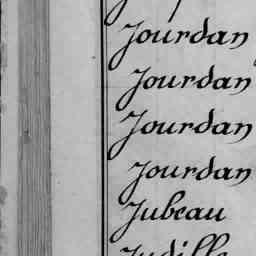 Jourdan
Jourdan
Jourdan
Jourdan
Jubeau